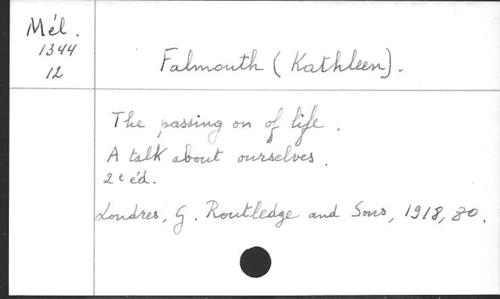 Mél.
1344
12
Falmouth (Kathleen).
The passing on of life.
A talk about ourselves.
2e éd.
Londres, G. Routledge and Sons, 1918, 80.